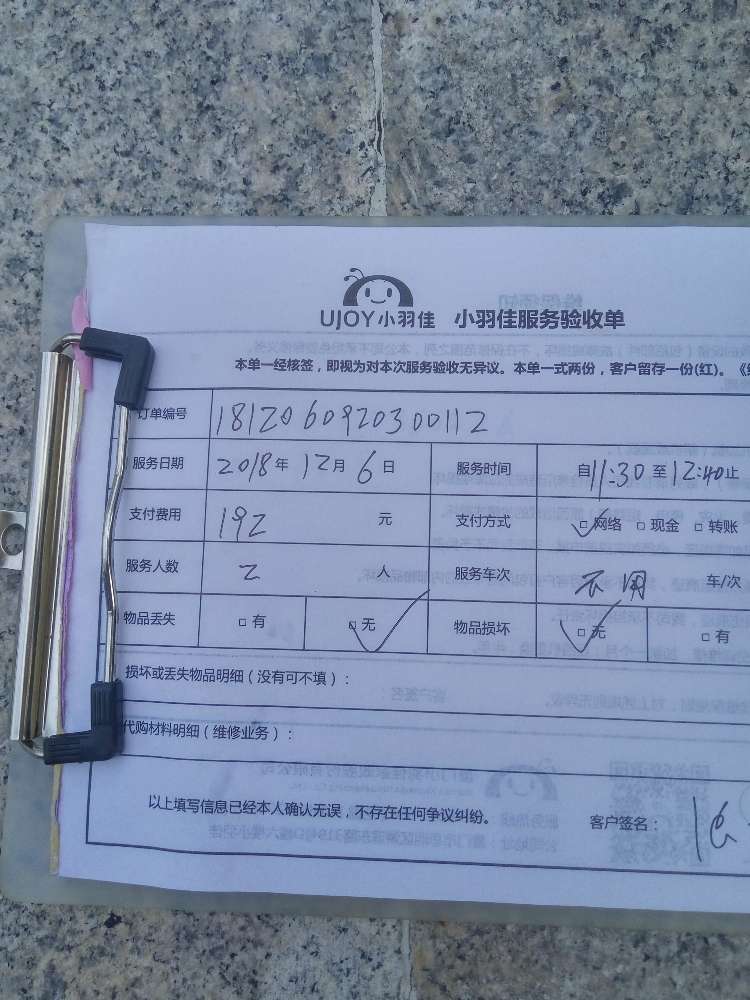 UJOY小羽佳 小羽佳服务验收单
本单一经核签，即视为对本次服务验收无异议。本单一式两份，客户留存一份(红)。
订单编号 1812060920300112
服务日期 2018年 12月 6日 服务时间 自11:30至12:40止
支付费用 192 元 支付方式 ☑网络 □现金 □转账
服务人数 2 人 服务车次 不用 车/次
物品丢失 □有 ☑无 物品损坏 ☑无 □有
损坏或丢失物品明细（没有可不填）：
代购材料明细（维修业务）：
以上填写信息已经本人确认无误，不存在任何争议纠纷。 客户签名：